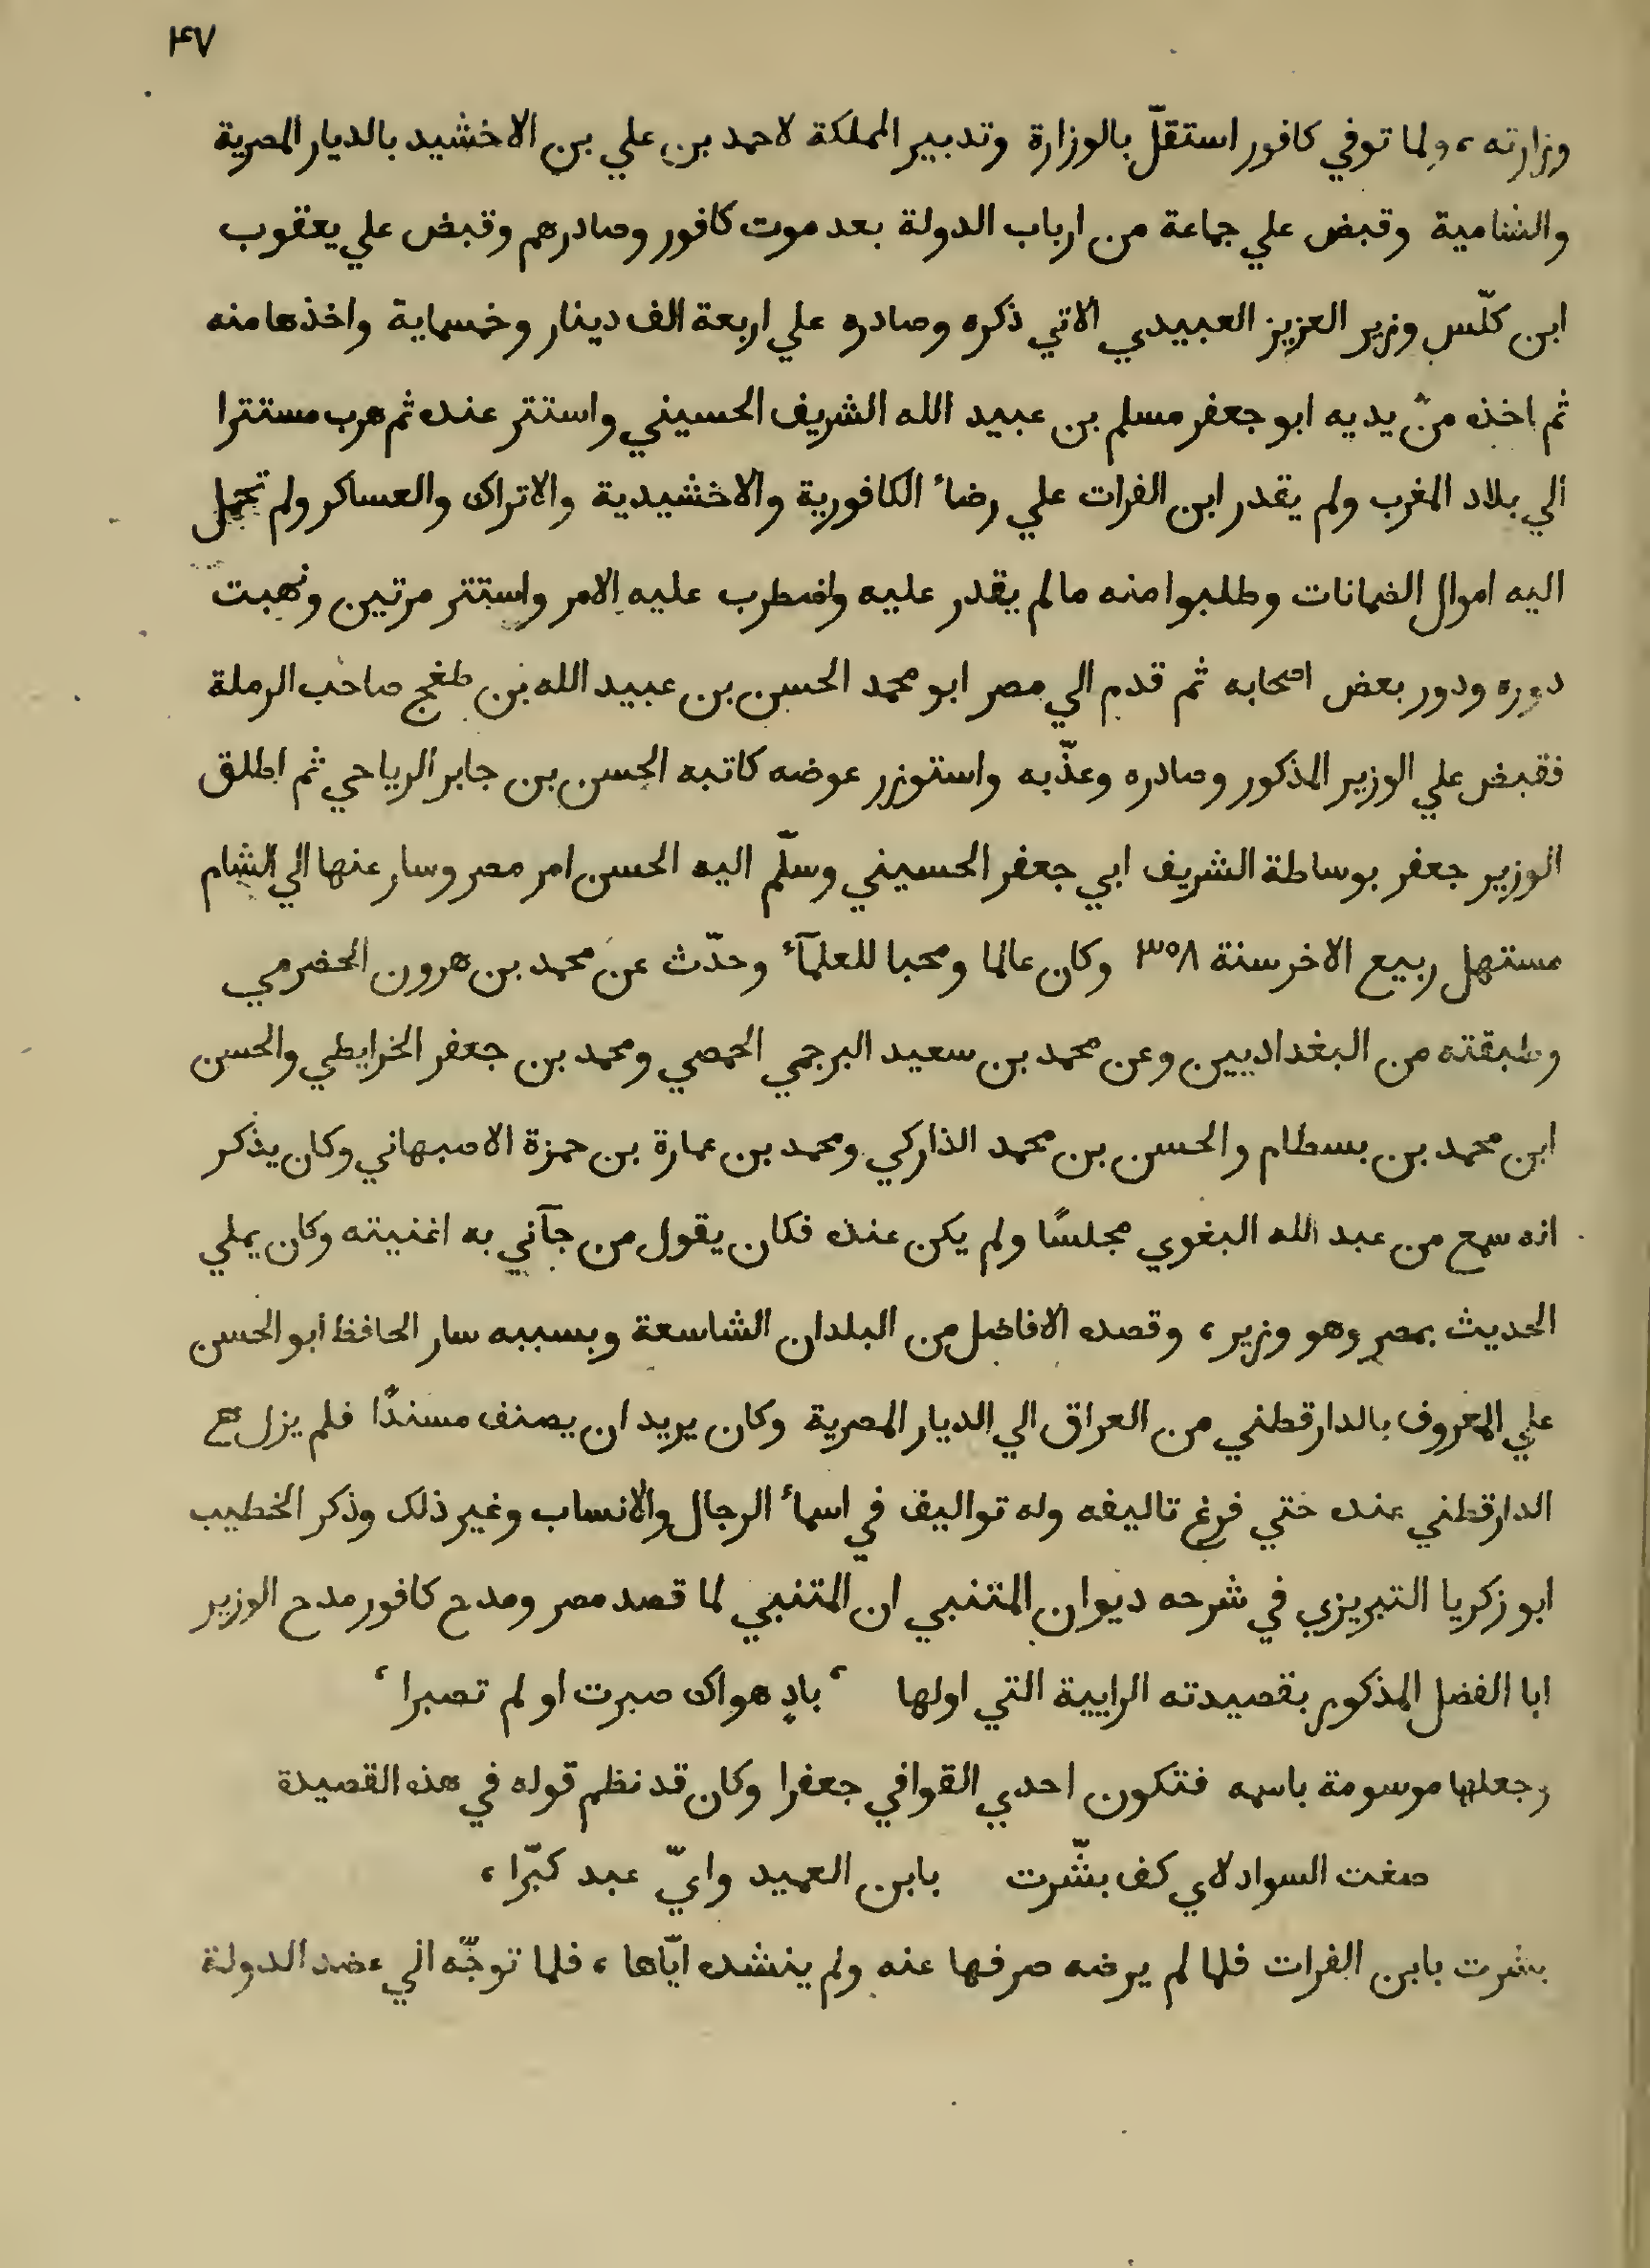 ۴۷
وزارته، ولما توفي كافور استقلّ بالوزارة وتدبير المملكة لاحمد بن علي بن الاخشيد بالديار المصرية
والشامية وقبض علي جماعة من ارباب الدولة بعد موت كافور وصادرهم وقبض علي يعقوب
ابن كلّس وزير العزيز العبيدي الاتي ذكره وصادره علي اربعة الف دينار وخمسماية واخذها منه
ثم اخذه من يديه ابو جعفر مسلم بن عبيد الله الشريف الحسيني واستتر عنده ثم هرب مستترا
الي بلاد المغرب ولم يقدر ابن الفرات علي رضاء الكافورية والاخشيدية والاتراك والعساكر ولم تحمل
اليه اموال الضمانات وطلبوا منه مالم يقدر عليه واضطرب عليه الامر واستتر مرتين ونهبت
دوره ودور بعض اصحابه ثم قدم الي مصر ابو محمد الحسن بن عبيد الله بن طغج صاحب الرملة
فقبض علي الوزير المذكور وصادره وعذّبه واستوزر عوضه كاتبه الحسن بن جابر الرياحي ثم اطلق
الوزير جعفر بوساطة الشريف ابي جعفر الحسيني وسلّم اليه الحسن امر مصر وسار عنها الي الشام
مستهل ربيع الاخر سنة ٣٥٨ وكان عالما ومحبا للعلمآء وحدّث عن محمد بن هرون الحضرمي
وطبقته من البغداديين وعن محمد بن سعيد البرجمي الحمصي ومحمد بن جعفر الخرايطي والحسن
ابن محمد بن بسطام والحسن بن محمد الذاركي ومحمد بن عمارة بن حمزة الاصبهاني وكان يذكر
انه سمع من عبد الله البغوي مجلسًا ولم يكن عنده فكان يقول من جآني به اغنيته وكان يملي
الحديث بمصر وهو وزير، وقصده الافاضل من البلدان الشاسعة وبسببه سار الحافظ ابو الحسن
علي المعروف بالدارقطني من العراق الي الديار المصرية وكان يريد ان يصنف مسندًا فلم يزل
الدارقطني عنده حتي فرغ تاليفه وله تواليف في اسماء الرجال والانساب وغير ذلك وذكر الخطيب
ابو زكريا التبريزي في شرحه ديوان المتنبي ان المتنبي لما قصد مصر ومدح كافور مدح الوزير
ابا الفضل المذكور بقصيدته الرايية التي اولها ، بادٍ هواك صبرت او لم تصبرا ،
وجعلها موسومة باسمه فتكون احدي القوافي جعفرا وكان قد نظم قوله في هذه القصيدة
صغت السوار لاي كف بشّرت بابن العميد وايّ عبد كبّرا،
بشرت بابن الفرات فلما لم يرضه صرفها عنه ولم ينشده ايّاها، فلما توجّه الي عضد الدولة